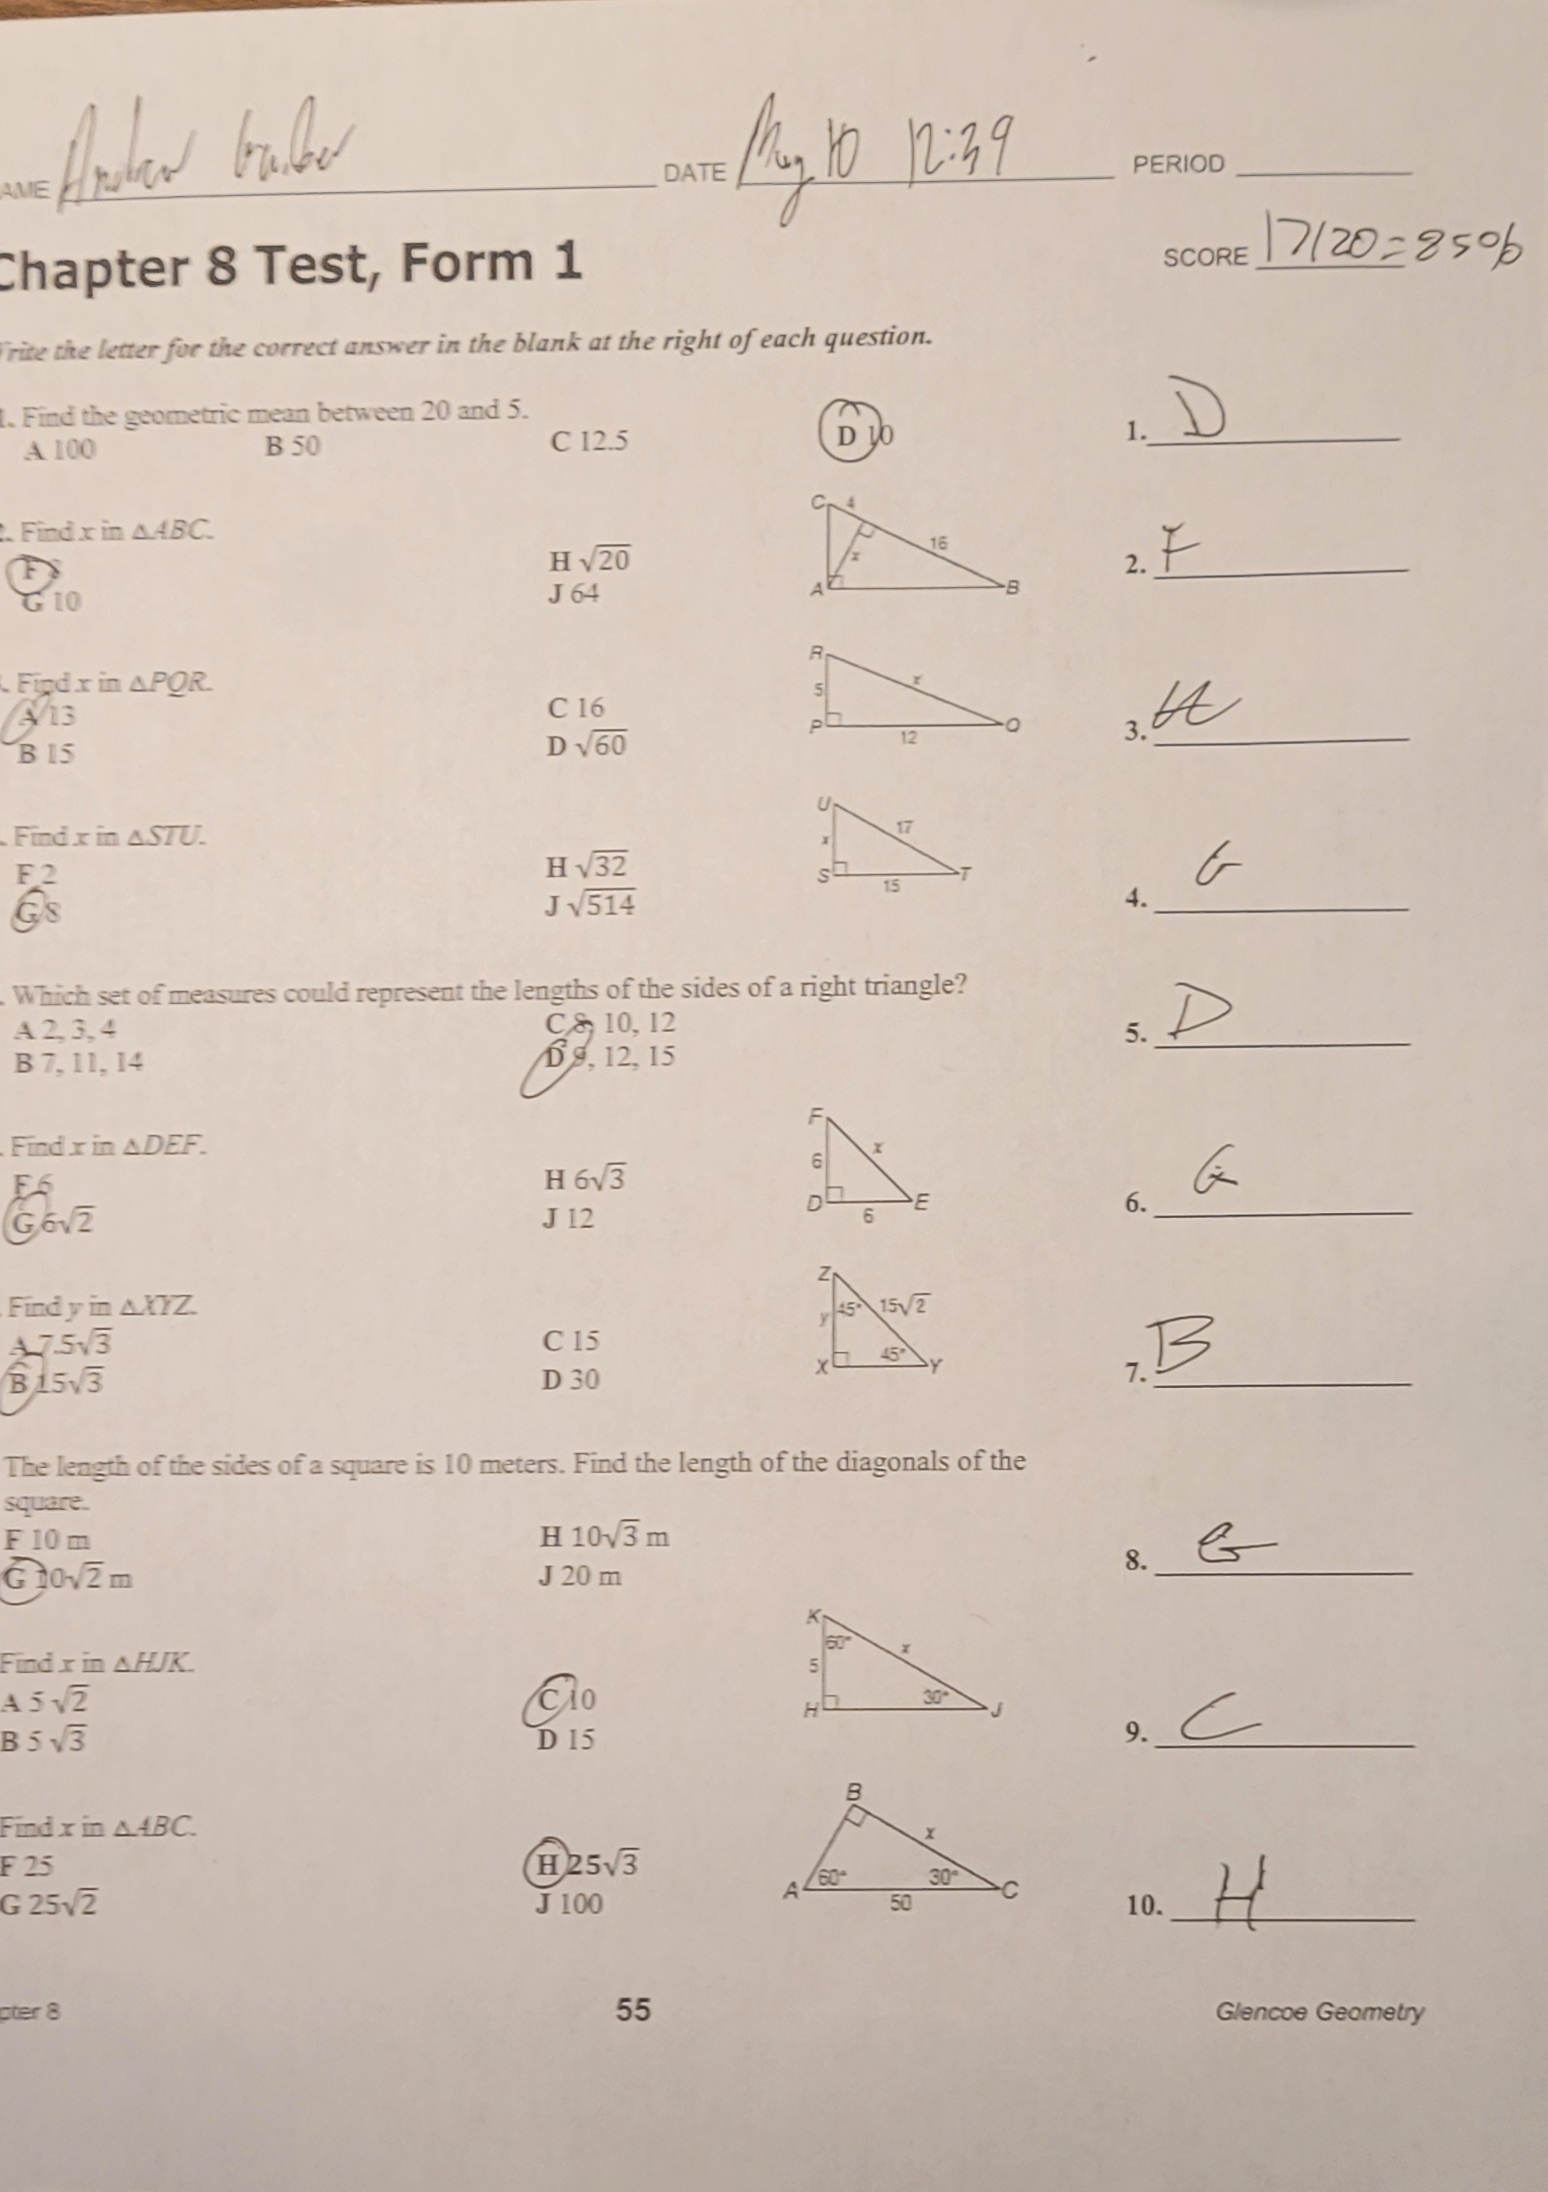 AME Andrew DATE May 10 12:39 PERIOD
SCORE 17/20=85%
Chapter 8 Test, Form 1
rite the letter for the correct answer in the blank at the right of each question.
1. Find the geometric mean between 20 and 5.
A 100 B 50 C 12.5 D 10
1. D
. Find x in △ABC.
F 8 H √20
G 10 J 64
C 4 16 x A B
2. F
. Find x in △PQR.
A 13 C 16
B 15 D √60
R x 5 P 12 Q
3. A
. Find x in △STU.
F 2 H √32
G 8 J √514
U 17 x S 15 T
4. G
. Which set of measures could represent the lengths of the sides of a right triangle?
A 2, 3, 4 C 8, 10, 12
B 7, 11, 14 D 9, 12, 15
5. D
. Find x in △DEF.
F 6 H 6√3
G 6√2 J 12
F x 6 D 6 E
6. G
Find y in △XYZ.
A 7.5√3 C 15
B 15√3 D 30
Z 45° 15√2 y X 45° Y
7. B
The length of the sides of a square is 10 meters. Find the length of the diagonals of the
square.
F 10 m H 10√3 m
G 10√2 m J 20 m
8. G
Find x in △HJK.
A 5 √2 C 10
B 5 √3 D 15
K 60° x 5 H 30° J
9. C
Find x in △ABC.
F 25 H 25√3
G 25√2 J 100
B x A 60° 30° C 50
10. H
pter 8 55 Glencoe Geometry